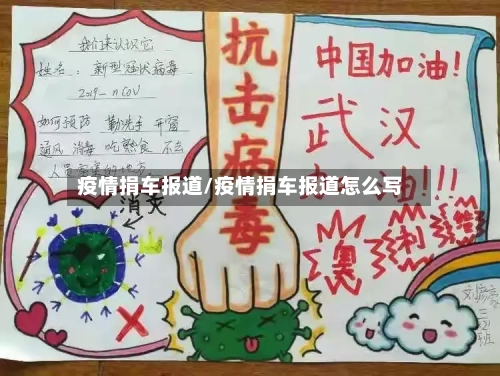 我们来认识它
姓名：新型冠状病毒
2019-nCOV
如何预防 勤洗手 开窗
通风 消毒 吃熟食 不去
人员密集的地方
消灭
抗击病毒
中国加油!
武汉
加油!!!
疫情捐车报道/疫情捐车报道怎么写
必胜利
三班